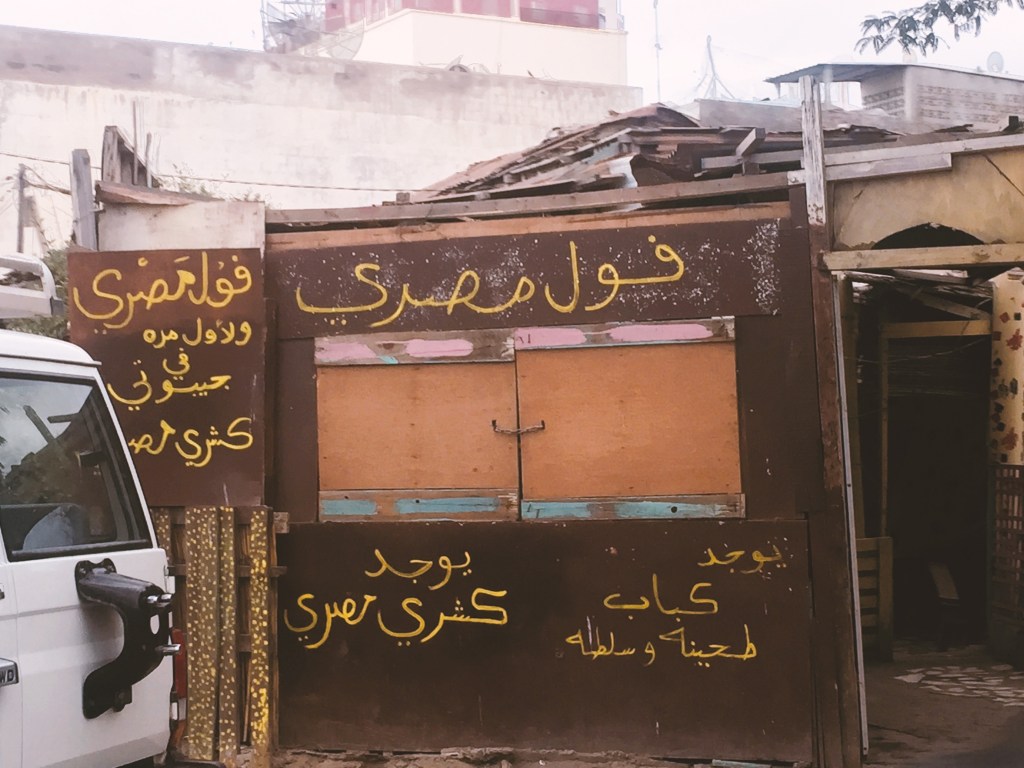 فول مصري
فول مصري
ولاول مره
في
جيبوتي
كشري مص
يوجد
كشري مصري
يوجد
كباب
طحينه وسلطه